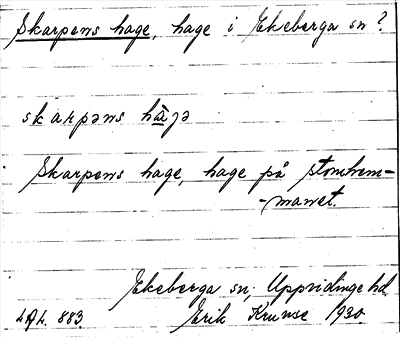 Skarpens hage, hage i Ekeberga sn?
skarpəns hàgə
Skarpens hage, hage på stomhem-
-manet.
Ekeberga sn; Uppvidinge hd
LAL. 883 Erik Krunse 1930